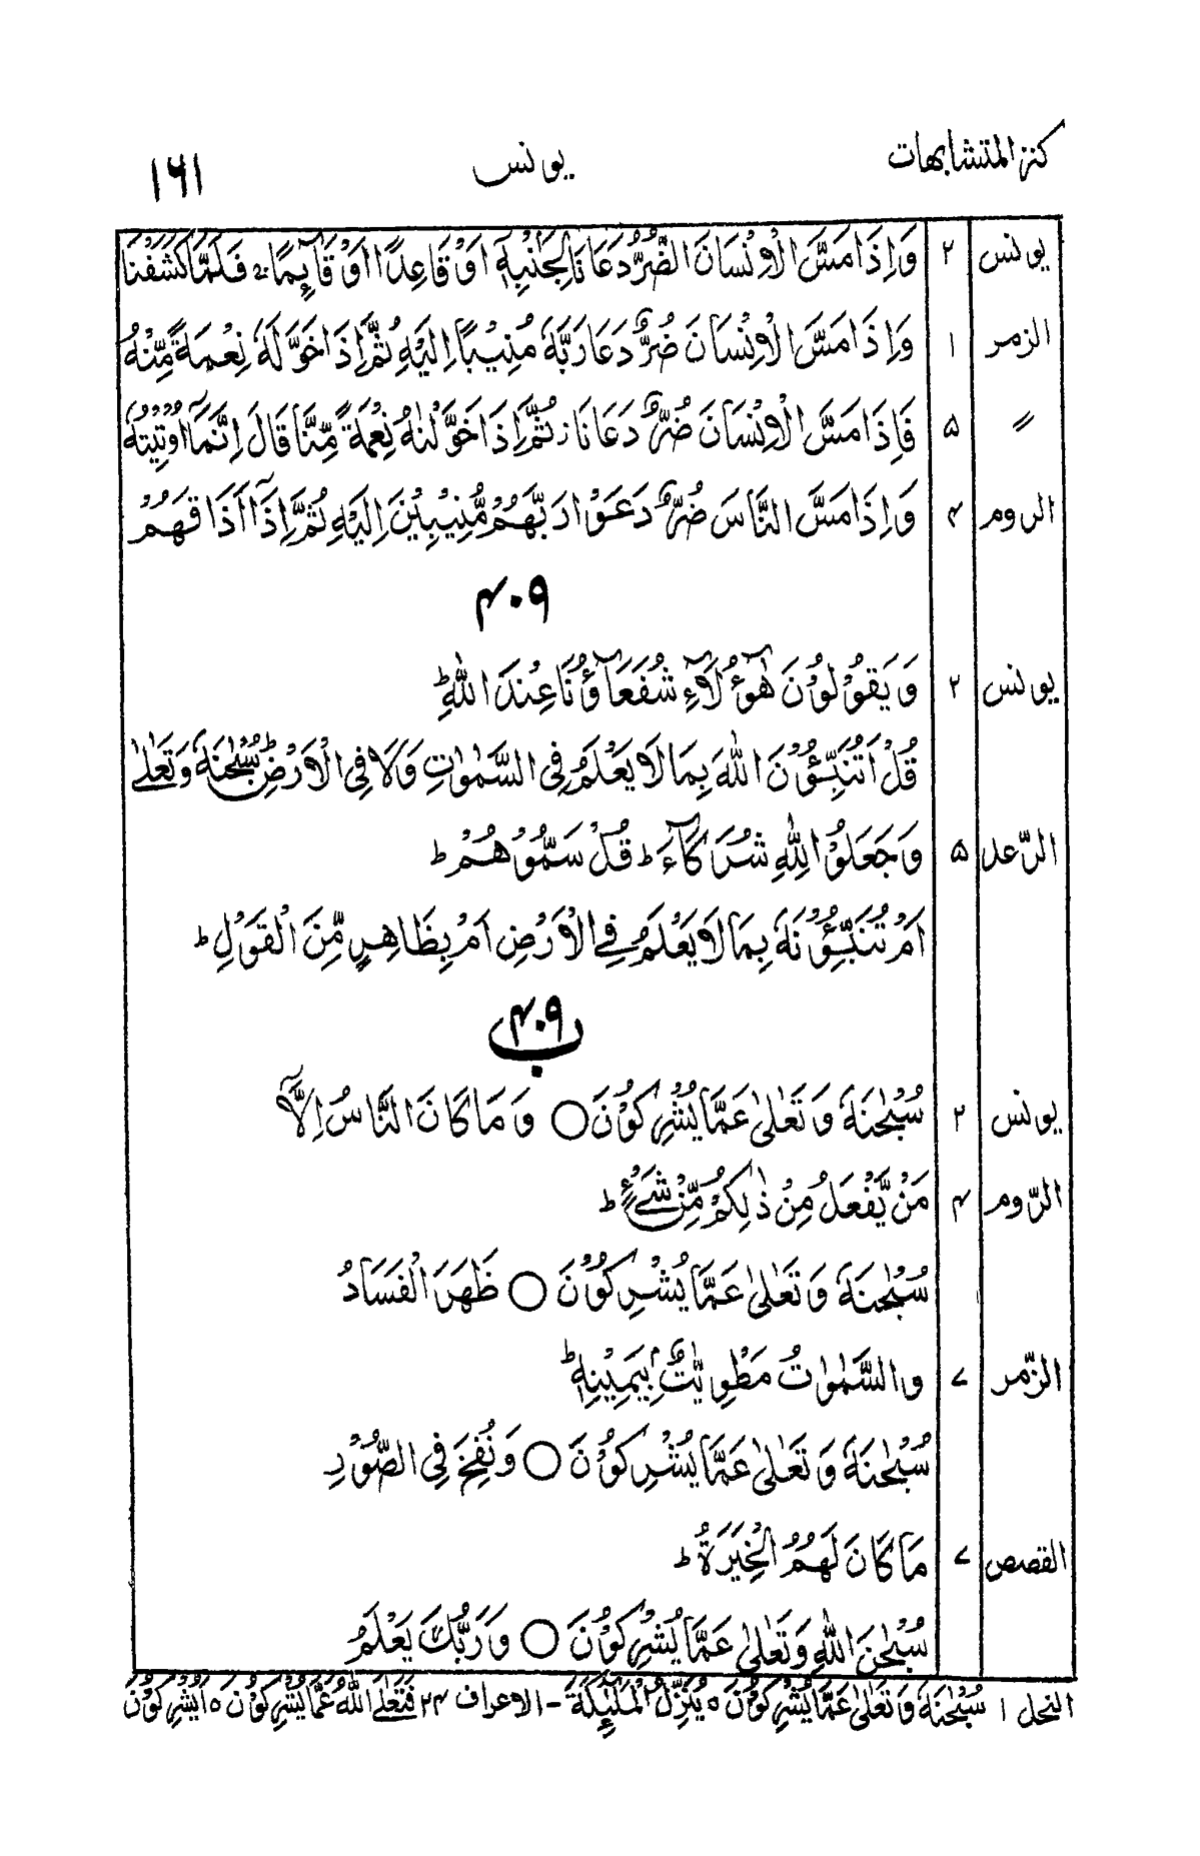 كنز المتشابهات يونس ۱۶۱
يونس ۲ وَاِذَا مَسَّ الْاِنْسَانَ الضُّرُّ دَعَانَا لِجَنْۢبِهٖۤ اَوْ قَاعِدًا اَوْ قَآئِمًا ۚ فَلَمَّا كَشَفْنَا
الزمر ۱ وَاِذَا مَسَّ الْاِنْسَانَ ضُرٌّ دَعَا رَبَّهٗ مُنِيْبًا اِلَيْهِ ثُمَّ اِذَا خَوَّلَهٗ نِعْمَةً مِّنْهُ
〃 ۵ فَاِذَا مَسَّ الْاِنْسَانَ ضُرٌّ دَعَانَا ز ثُمَّ اِذَا خَوَّلْنٰهُ نِعْمَةً مِّنَّا قَالَ اِنَّمَاۤ اُوْتِيْتُهٗ
الروم ۴ وَاِذَا مَسَّ النَّاسَ ضُرٌّ دَعَوْا رَبَّهُمْ مُّنِيْبِيْنَ اِلَيْهِ ثُمَّ اِذَاۤ اَذَاقَهُمْ
۴۰۹
يونس ۲ وَيَقُوْلُوْنَ هٰٓؤُلَآءِ شُفَعَآؤُنَا عِنْدَ اللّٰهِ ؕ
قُلْ اَتُنَبِّـُٔوْنَ اللّٰهَ بِمَا لَا يَعْلَمُ فِى السَّمٰوٰتِ وَلَا فِى الْاَرْضِ ؕ سُبْحٰنَهٗ وَتَعٰلٰى
الرّعد ۵ وَجَعَلُوْا لِلّٰهِ شُرَكَآءَ ؕ قُلْ سَمُّوْهُمْ ؕ
اَمْ تُنَبِّـُٔوْنَهٗ بِمَا لَا يَعْلَمُ فِى الْاَرْضِ اَمْ بِظَاهِرٍ مِّنَ الْقَوْلِ ؕ
۴۰۹ ب
يونس ۲ سُبْحٰنَهٗ وَتَعٰلٰى عَمَّا يُشْرِكُوْنَ ○ وَمَا كَانَ النَّاسُ اِلَّاۤ
الرّوم ۴ مَنْ يَّفْعَلُ مِنْ ذٰلِكُمْ مِّنْ شَىْءٍ ؕ
سُبْحٰنَهٗ وَتَعٰلٰى عَمَّا يُشْرِكُوْنَ ○ ظَهَرَ الْفَسَادُ
الزّمر ۷ والسَّمٰوٰتُ مَطْوِيّٰتٌۢ بِيَمِيْنِهٖ ؕ
سُبْحٰنَهٗ وَتَعٰلٰى عَمَّا يُشْرِكُوْنَ ○ وَنُفِخَ فِى الصُّوْرِ
القصص ۷ مَا كَانَ لَهُمُ الْخِيَرَةُ ؕ
سُبْحٰنَ اللّٰهِ وَتَعٰلٰى عَمَّا يُشْرِكُوْنَ ○ وَرَبُّكَ يَعْلَمُ
النحل ۱ سُبْحٰنَهٗ وَتَعٰلٰى عَمَّا يُشْرِكُوْنَ ○ يُنَزِّلُ الْمَلٰٓئِكَةَ - الاعراف ۲۴ فَتَعٰلَى اللّٰهُ عَمَّا يُشْرِكُوْنَ ○ اَيُشْرِكُوْنَ